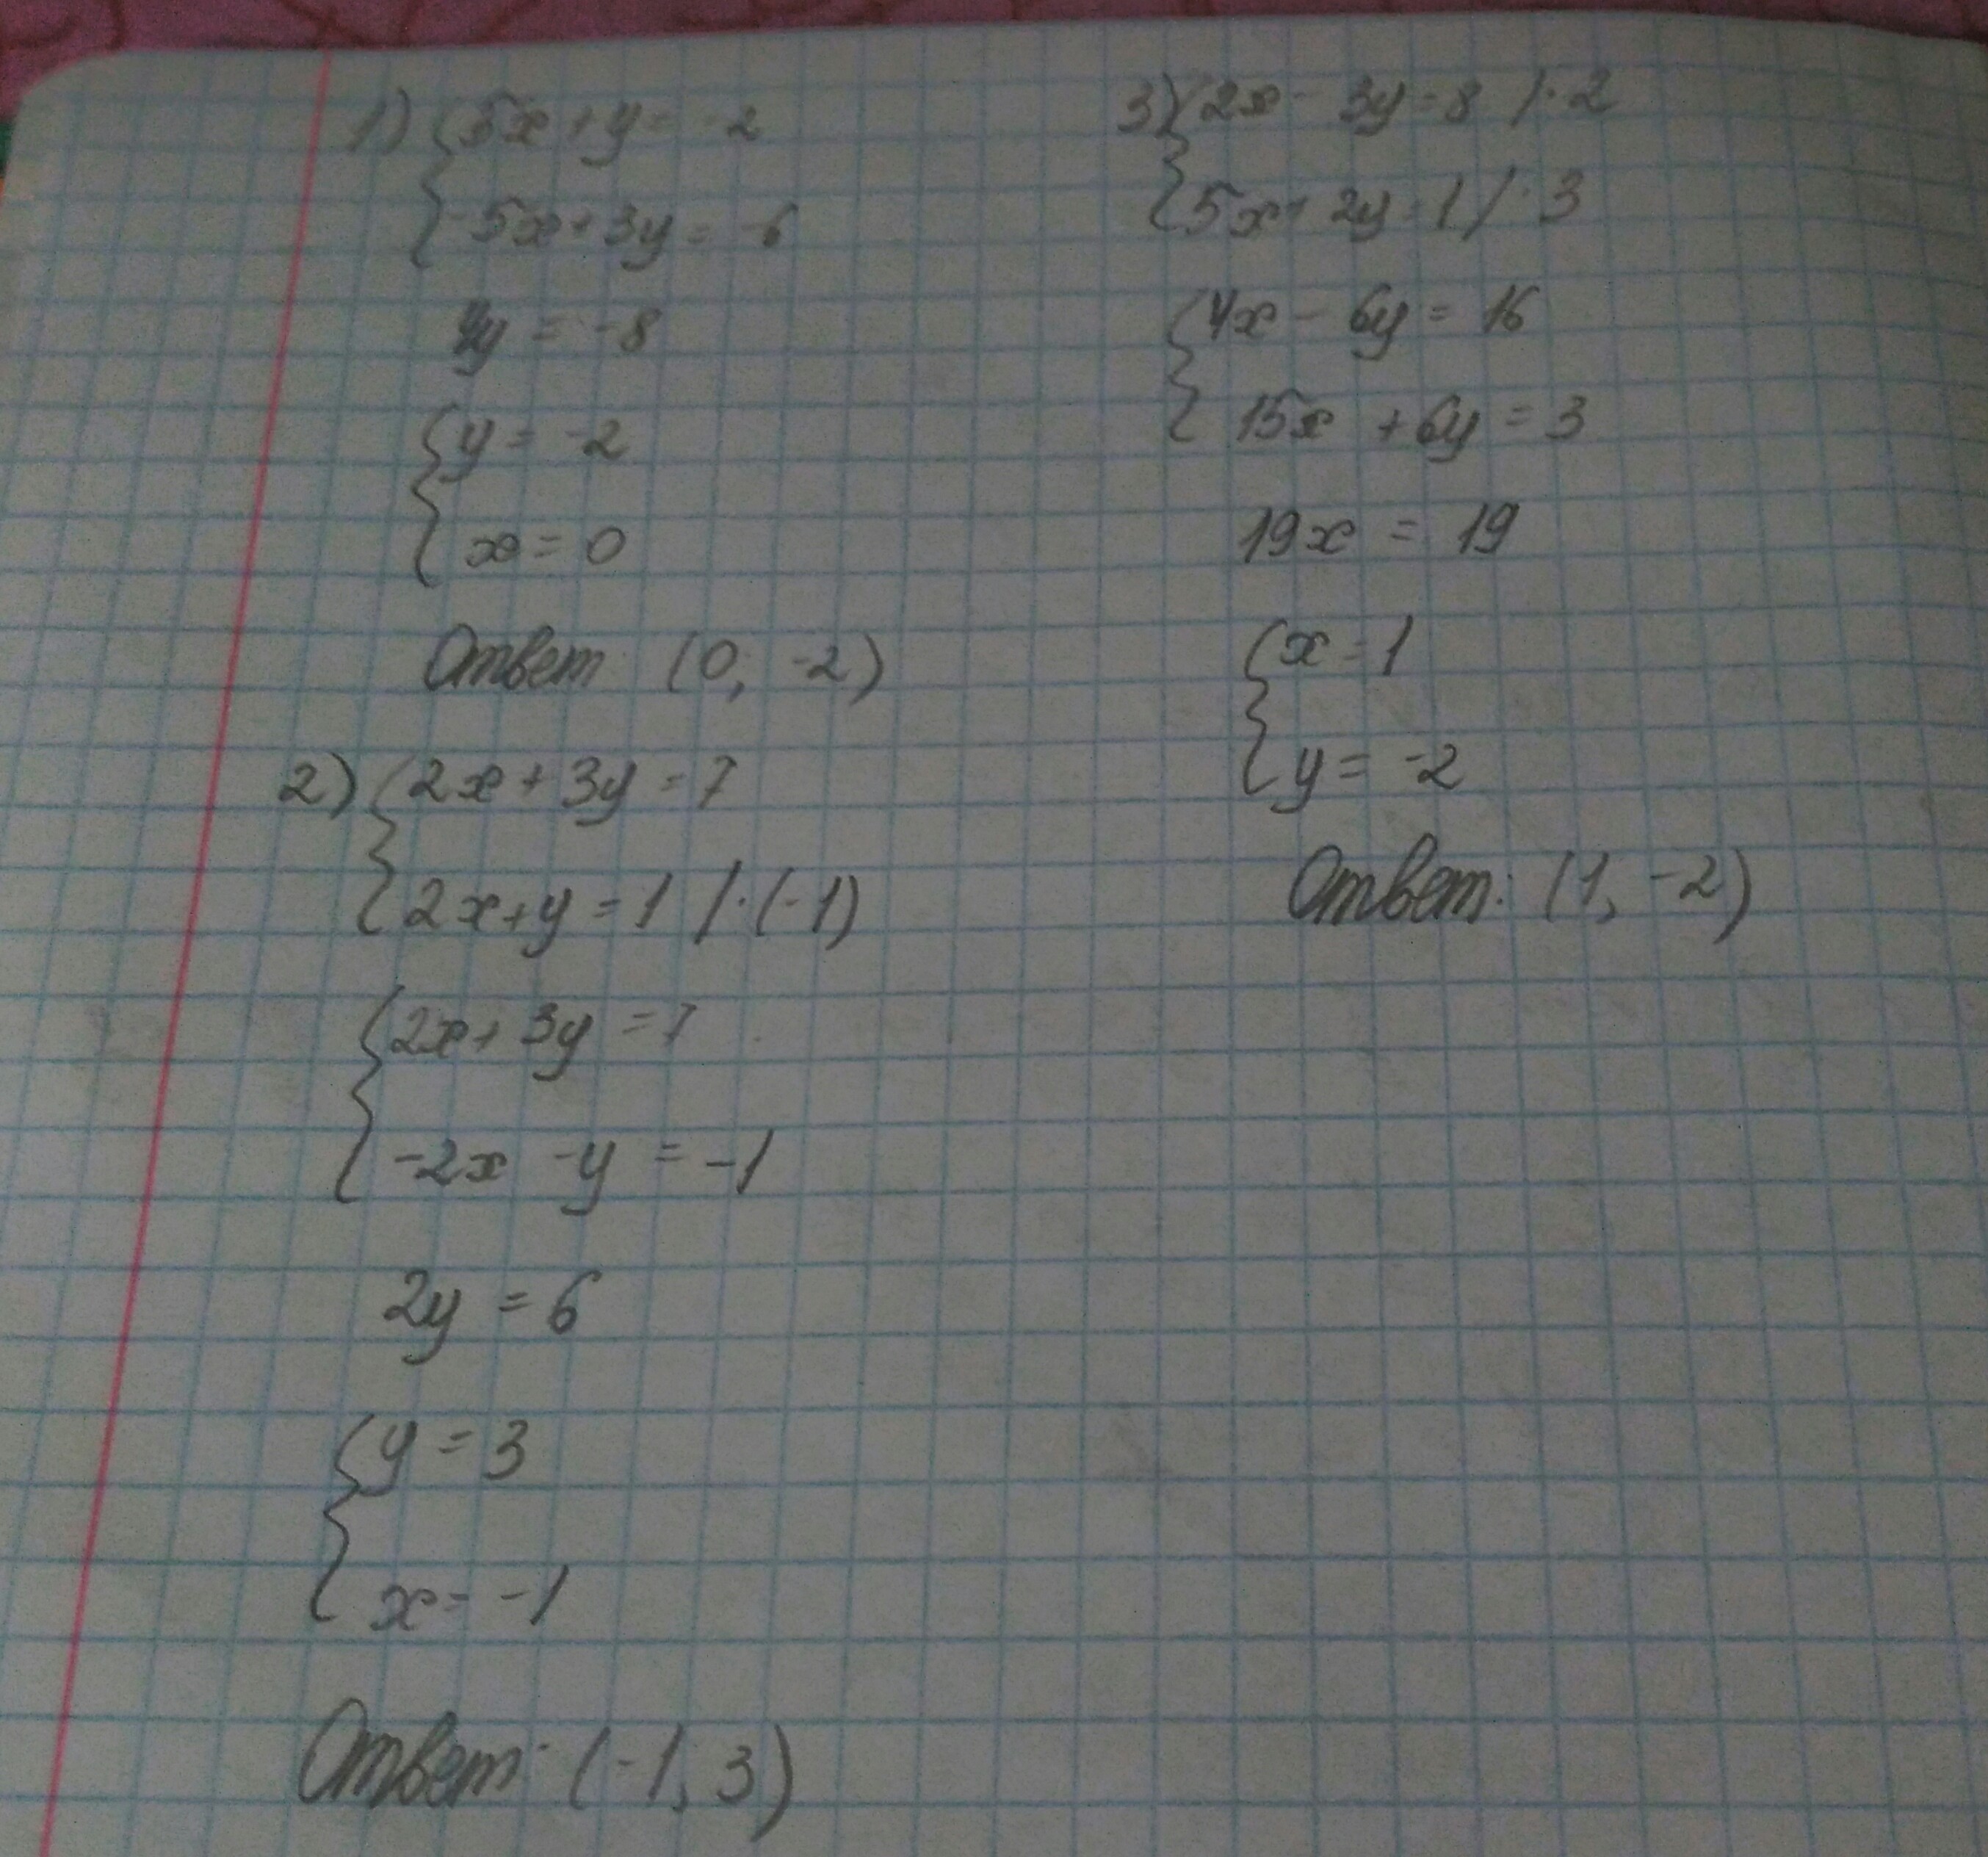 1) {5x + y = -2
-5x + 3y = -6
4y = -8
{y = -2
x = 0
Ответ: (0; -2)
2) {2x + 3y = 7
2x + y = 1 /·(-1)
{2x + 3y = 7
-2x - y = -1
2y = 6
{y = 3
x = -1
Ответ: (-1; 3)
3) {2x - 3y = 8 /·2
5x + 2y = 1 /·3
{4x - 6y = 16
15x + 6y = 3
19x = 19
{x = 1
y = -2
Ответ: (1, -2)